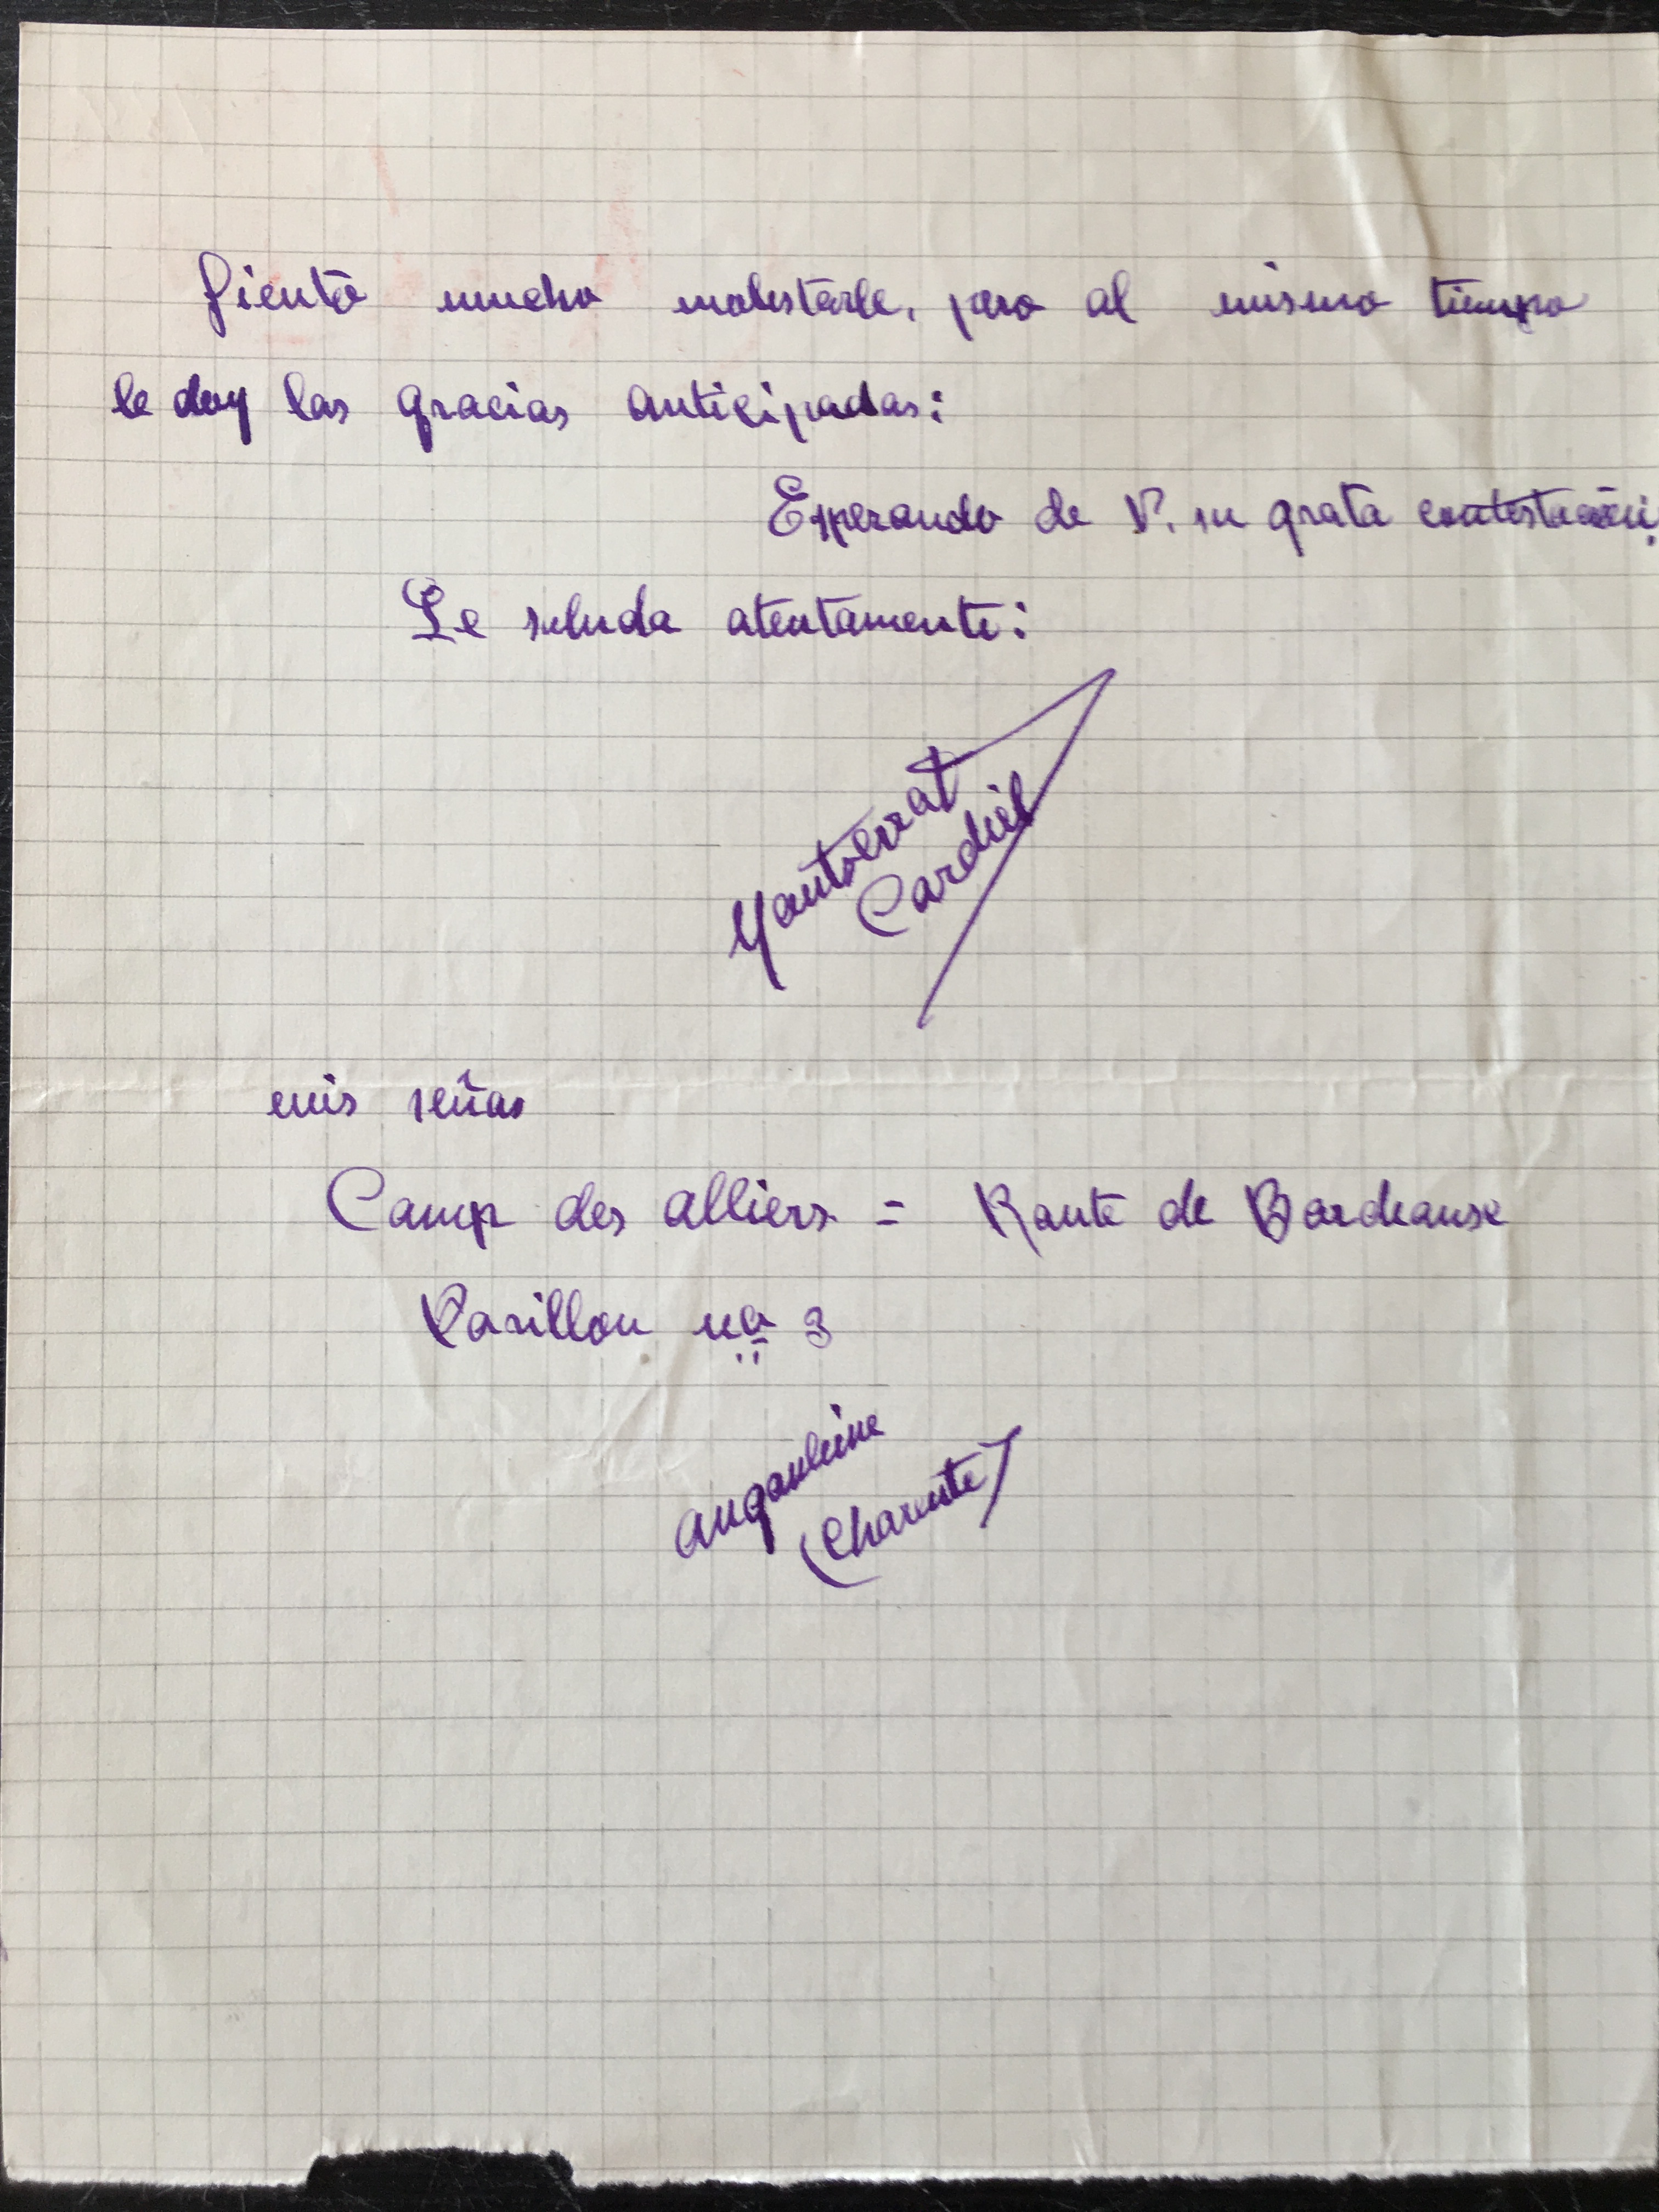 Siento mucho molestarle, pero al mismo tiempo
le doy las gracias anticipadas:
Esperando de V. su grata contestación.
Le saluda atentamente:
Montserrat
Cardiel
mis señas
Camp des alliers = Route de Bordeause
Pavillon no 3
Angouleime
(Charente)